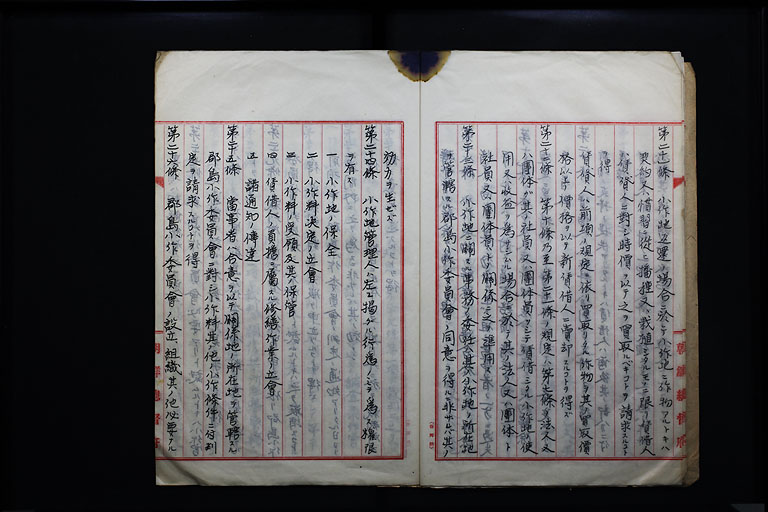 第二十一條 小作地返還ノ場合ニ於テ小作地ニ作物アルトキハ
契約又ハ慣習ニ從ヒ播種又ハ栽植シタルモノニ限リ賃借人
ハ賃貸人ニ對シ時價ヲ以テ之ヲ買取ルベキコトヲ請求スルコト
ヲ得
賃貸人ハ前項ノ規定ニ依リ買取リタル作物ヲ其ノ買取價
格以下ノ價格ヲ以テ新賃借人ニ賣却スルコトヲ得ズ
第二十二條 第十條乃至第二十一條ノ規定ハ第七條ノ法人又
ハ團體ガ其ノ社員又ハ團體員ヲシテ賃借シタル小作地ヲ使
用又ハ收益ヲ爲サシムル場合ニ於テ其ノ法人又ハ團體ト
社員又ハ團體員トノ關係ニ之ヲ準用ス
第二十三條 小作地ニ關スル事務ハ每年其ノ小作地ノ所在地
ヲ管轄スル郡島小作委員會ノ同意ヲ得ルニ非ザレバ其ノ
效力ヲ生ゼズ
第二十四條 小作地管理人ハ左ニ揭グル行爲ノミヲ爲ス權限
ヲ有ス
一 小作地ノ保全
二 小作料決定ノ立會
三 小作料ノ受領及其ノ保管
四 賃借人ノ負擔ニ屬スル修繕作業ノ立會
五 諸通知ノ傳達
第二十五條 當事者ハ合意ヲ以テ關係地ノ所在地ヲ管轄スル
郡島小作委員會ニ對シ小作料其ノ他小作條件ニ付判
定ヲ請求スルコトヲ得
第二十六條 郡島小作委員會ノ設立、組織其ノ他必要ナル